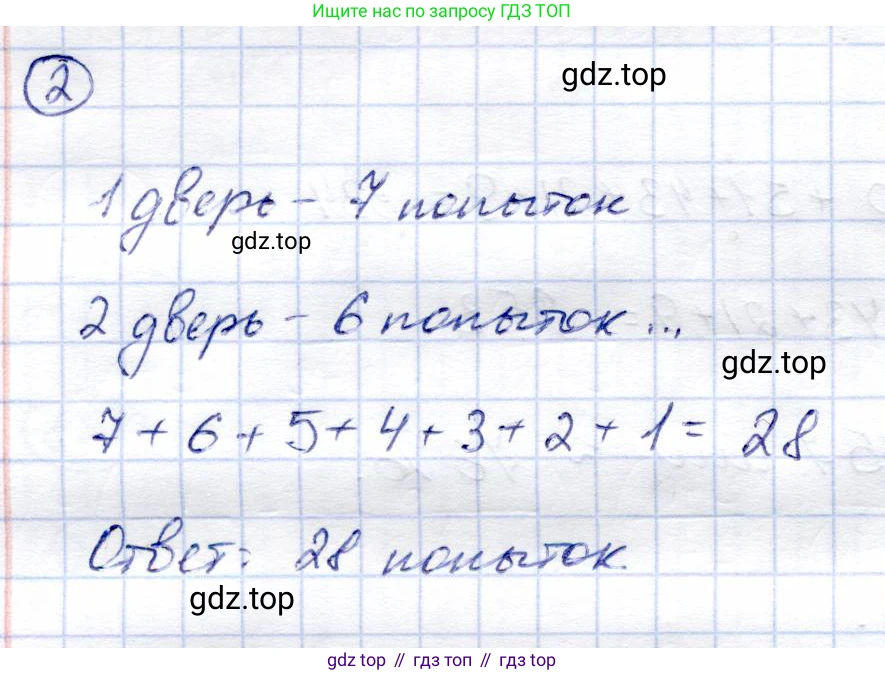 Ищите нас по запросу ГДЗ ТОП
2
gdz.top
1 дверь - 7 попыток
gdz.top
2 дверь - 6 попыток...
gdz.top
7 + 6 + 5 + 4 + 3 + 2 + 1 = 28
Ответ: 28 попыток.
gdz.top
gdz top // гдз топ // gdz top